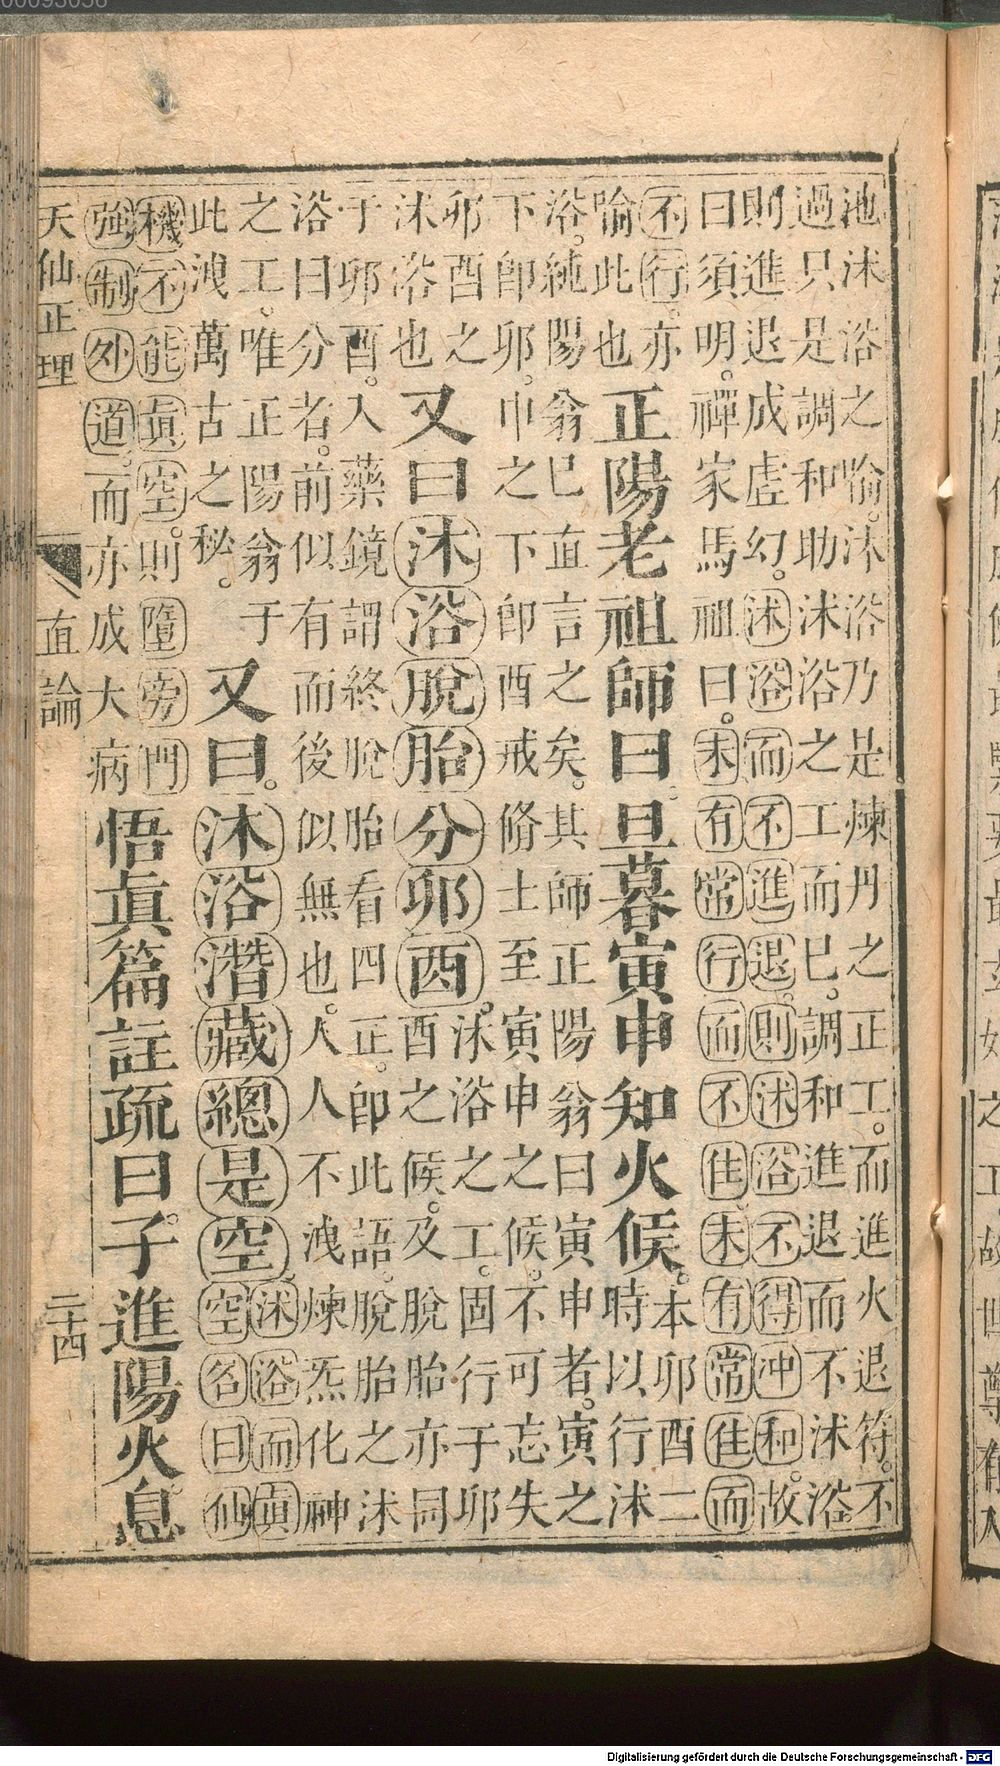 池沐浴之喻。沐浴乃是煉丹之正工。而進火退符。不
過只是調和助沐浴之工而已。調和進退而不沐浴
則進退成虛幻。沐浴而不進退。則沐浴不得冲和。故
曰須明。禪家馬祖曰。未有常行而不住未有常住而
不行。亦
喻此也
正陽老祖師曰。旦暮寅申知火候。
本卯酉二
時以行沐
浴。純陽翁已直言之矣。其師正陽翁曰寅申者。寅之
下卽卯。巾之下卽酉戒脩士至寅申之候。不可忘失
卯酉之
沐浴也
又曰沐浴脫胎分卯酉。
沐浴之工。固行于卯
酉之候。及脫胎亦同
于卯酉。入藥鏡謂終脫胎看四正。卽此語。脫胎之沐
浴曰分者。前似有而後似無也。人人不洩煉炁化神
之工。唯正陽翁于
此洩萬古之秘。
又曰。沐浴潛藏總是空
沐浴而眞
空名曰仙
機不能眞空。則墮旁門
強制外道。而亦成大病
悟眞篇註疏曰。子進陽火息
天仙正理
直論
二十四
Digitalisierung gefördert durch die Deutsche Forschungsgemeinschaft - DFG